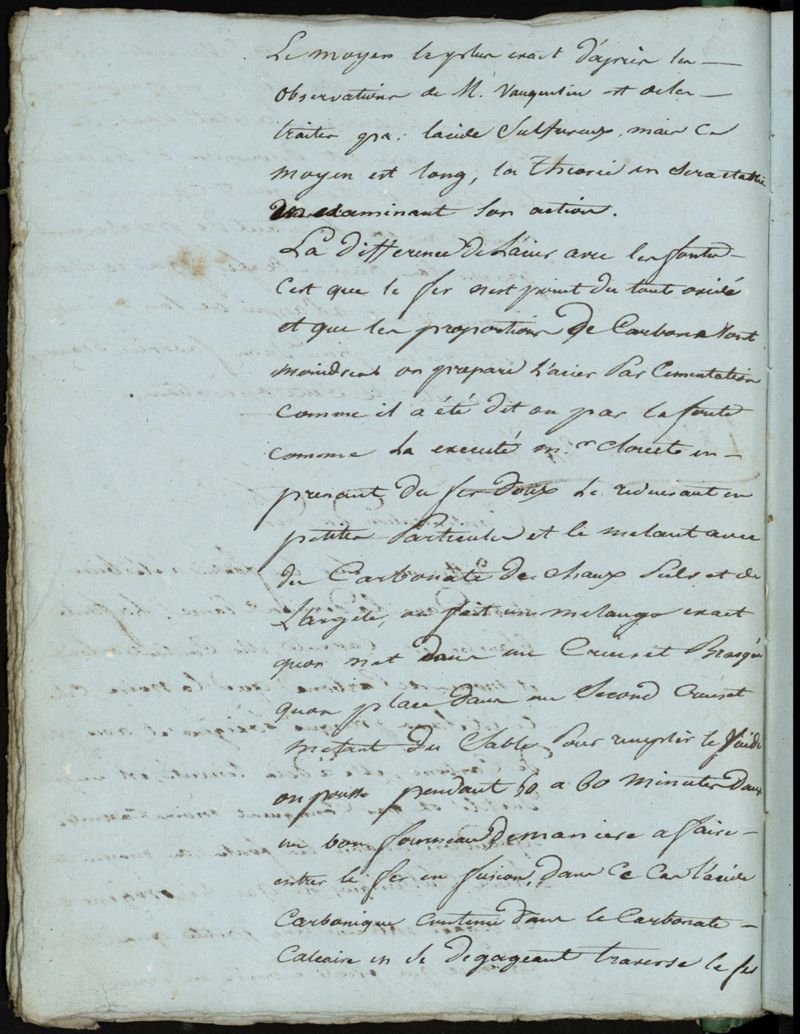 Le moyen le plus exact d'après les
observations de M. Vauquelin est de les
traiter par lacide Sulfureux, mais ce
moyen est long, la Theorie en sera etablie
en examinant son action.
La difference de L'acier avec les fontes
C'est que le fer n'est point du tout oxidé
et que les proportions de Carbone sont
moindres on prepare L'acier Par Cementation
comme il a été dit ou par la fonte
comme La executé m.r Clouet en
prenant du fer doux Le reduisant en
petites Particules et le melant avec
du Carbonate de chaux Pulv. et de
L'argile, on fait un melange exact
quon met dans un Creuset Brasqué
quon place dans un Second Creuset
metant du Sable Pour remplir le Vuide
on pousse pendant 50 a 60 minutes Dans
un bon fourneau de maniere a faire
entrer le fer en fusion, dans ce Cas l'acide
Carbonique contenu dans le Carbonate
Calcaire en se degageant traverse le fer